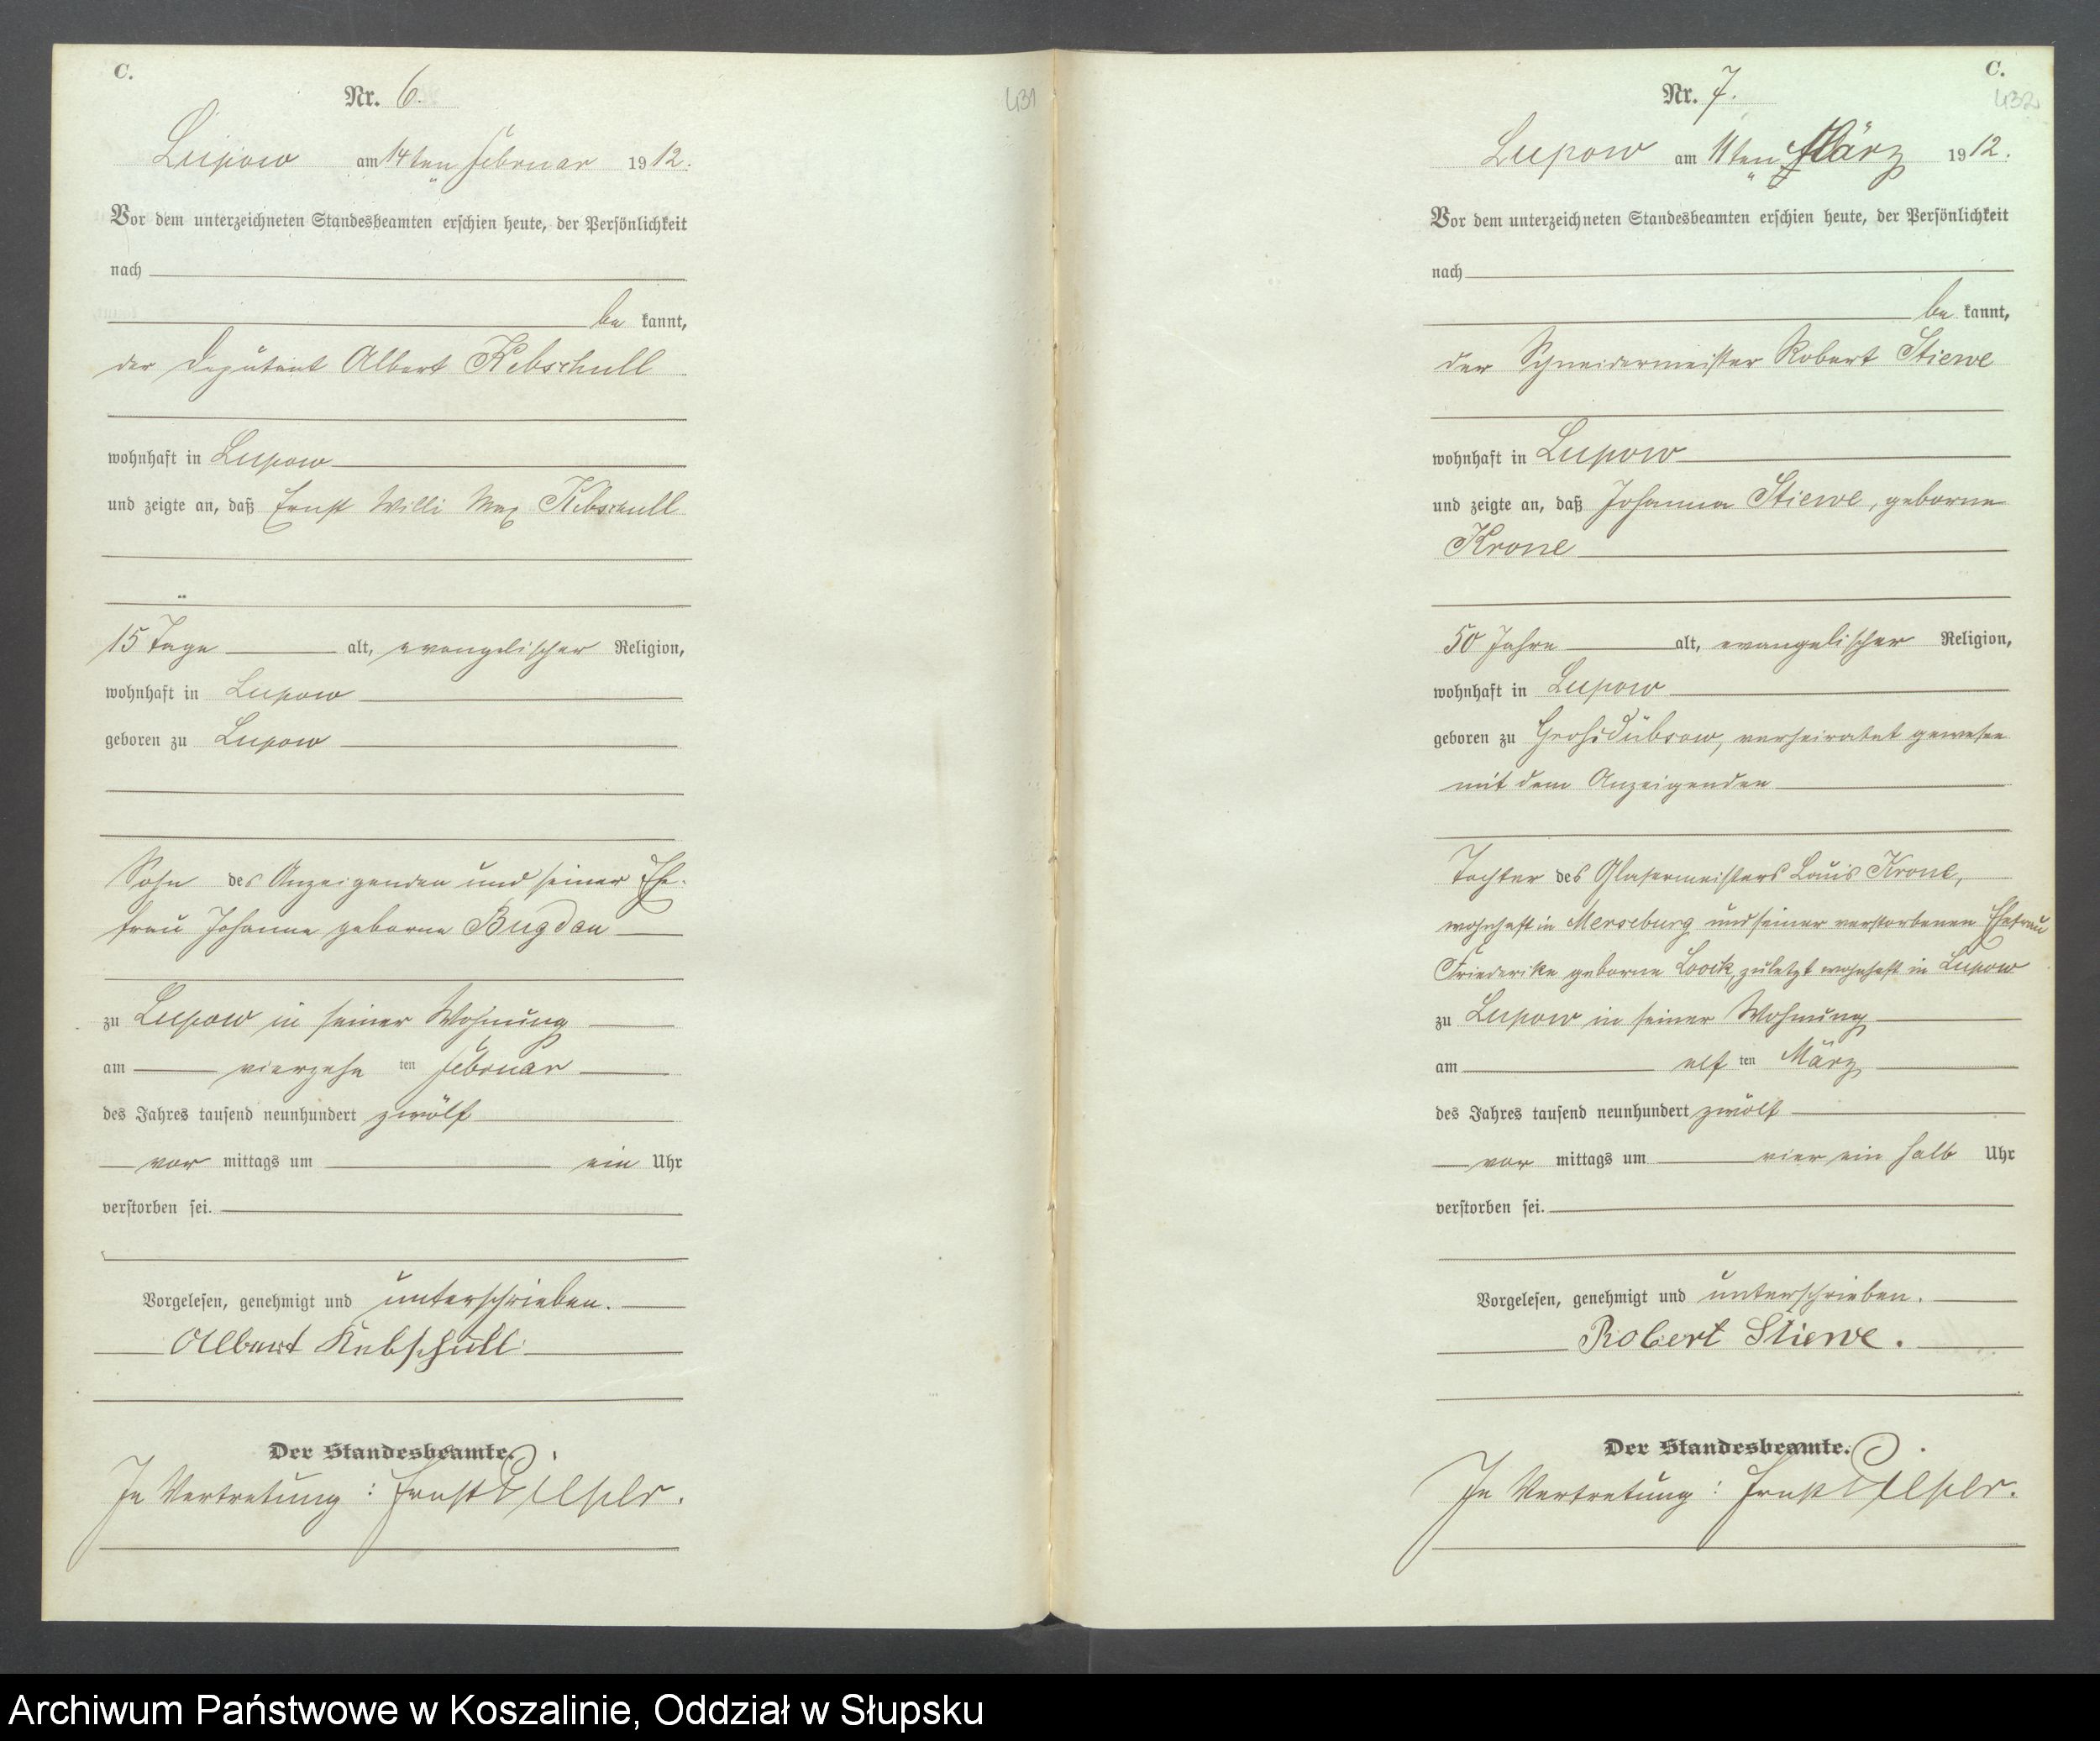 C.
Nr. 6.
431
Lupow am 14ten Februar 1912.
Vor dem unterzeichneten Standesbeamten erschien heute, der Persönlichkeit
nach
be kannt,
der Deputant Albert Kebschull
wohnhaft in Lupow
und zeigte an, daß Ernst Willi Max Kebschull
15 Tage alt, evangelischer Religion,
wohnhaft in Lupow
geboren zu Lupow
Sohn des Anzeigenden und seiner Ehe-
frau Johanne geborne Bugdan
zu Lupow in seiner Wohnung
am vierzehn ten Februar
des Jahres tausend neunhundert zwölf
vor mittags um ein Uhr
verstorben sei.
Vorgelesen, genehmigt und unterschrieben.
Albert Kebschull
Der Standesbeamte.
In Vertretung: Ernst
C.
Nr. 7.
432
Lupow am 11ten März 1912.
Vor dem unterzeichneten Standesbeamten erschien heute, der Persönlichkeit
nach
be kannt,
der Schneidermeister Robert Stiewe
wohnhaft in Lupow
und zeigte an, daß Johanna Stiewe, geborne
Krone
50 Jahre alt, evangelischer Religion,
wohnhaft in Lupow
geboren zu Groß Dübsow, verheiratet gewesen
mit dem Anzeigenden
Tochter des Glasermeisters Louis Krone,
wohnhaft in Merseburg und seiner verstorbenen Ehefrau
Friederike geborne Loock, zuletzt wohnhaft in Lupow
zu Lupow in seiner Wohnung
am elf ten März
des Jahres tausend neunhundert zwölf
vor mittags um vier ein halb Uhr
verstorben sei.
Vorgelesen, genehmigt und unterschrieben.
Robert Stiewe.
Der Standesbeamte.
In Vertretung: Ernst
Archiwum Państwowe w Koszalinie, Oddział w Słupsku